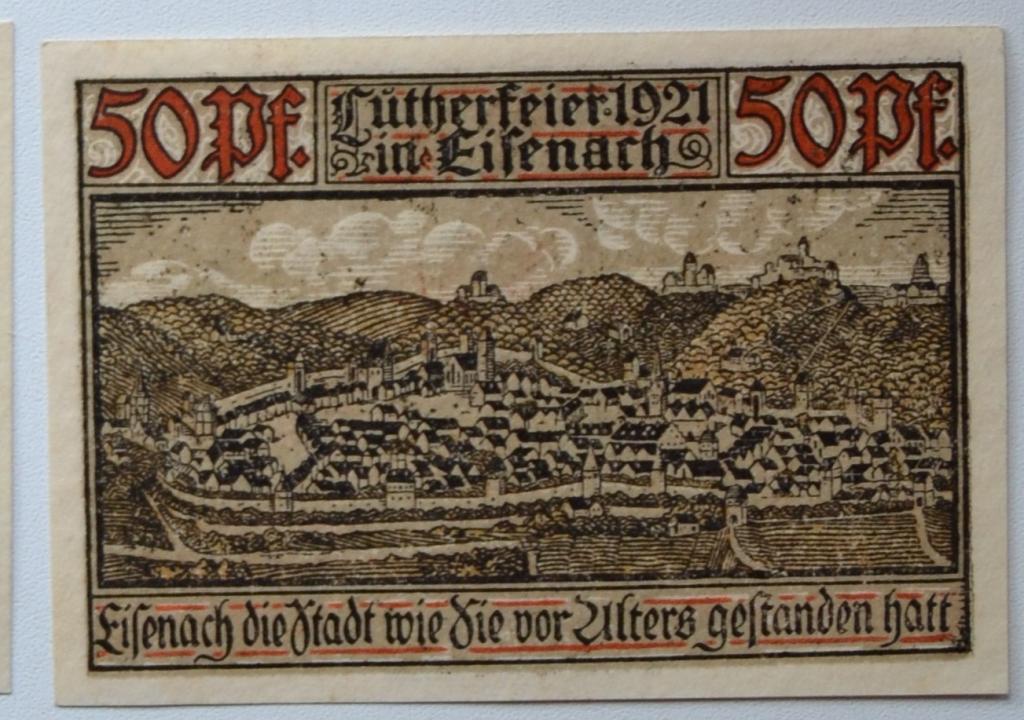 50 Pf.
Lutherfeier·1921
in Eisenach
50 Pf.
Eisenach die Stadt wie Sie vor Alters gestanden hatt